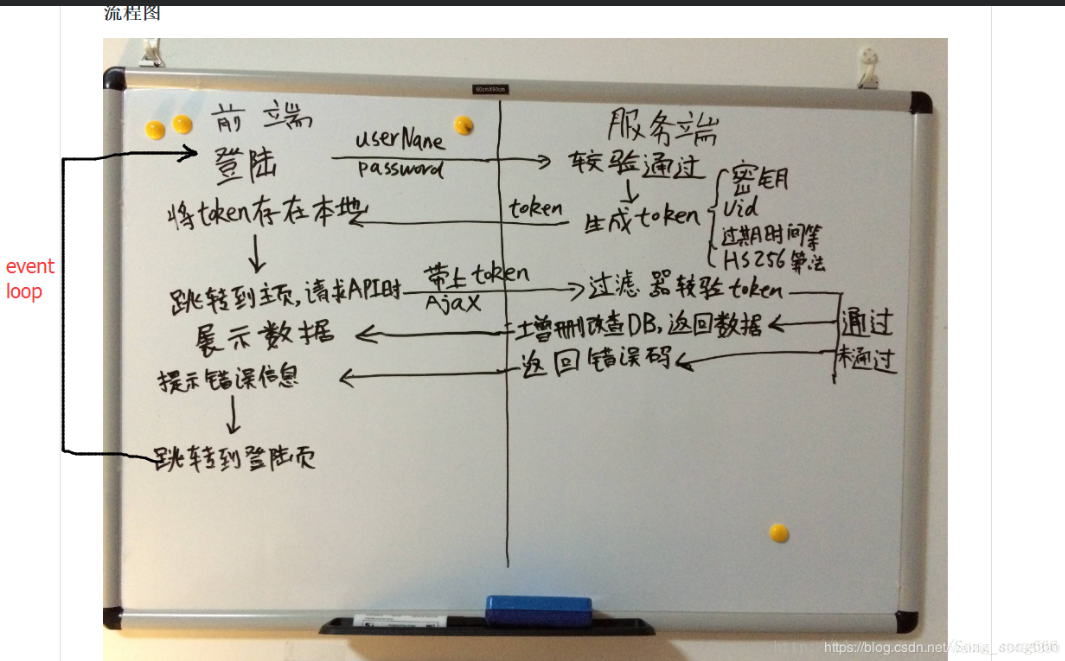 流程图
60cmX90cm
前端
服务端
登陆
userName
password
较验通过
将token存在本地
token
生成token
密钥
Uid
过期时间等
HS256算法
event
loop
跳转到主页,请求API时
带上token
Ajax
过滤器较验token
展示数据
增删改查DB,返回数据
通过
提示错误信息
返回错误码
未通过
跳转到登陆页
https://blog.csdn.net/Song_song666